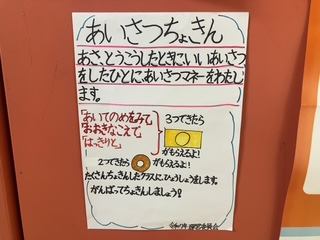 あいさつちょきん
あさ、とうこうしたときに、いいあいさつ
をしたひとに、あいさつマネーをわたし
ます。
「あいてのめをみて」
「おおきなこえで」
「はっきりと」
3つできたら
がもらえるよ!
2つできたら がもらえるよ!
たくさんちょきんしたクラスに、ひょうしょうをします。
がんばってちょきんしましょう!
運営委員会